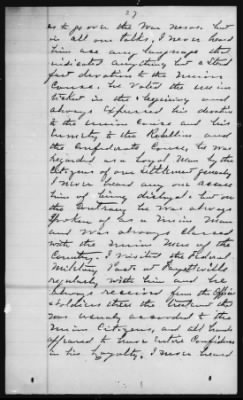 27
as to prove the War news. but
in all our talks, I never heard
him use any language that
indicated anything but
devotion to the Union
Cause. He voted the Union
ticket in the beginning and
always expressed his devotion
to the Union Cause and his
enmity to the Rebellion and
the Confederate Cause, he was
regarded as a Loyal Man by the
Citizens of our settlement generally
I never heard any one accuse
him of being disloyal, but on
the contrary he was always
spoken of as a Union Man
and was always classed
with the Union Men of the
Country. I visited the Federal
Military Post at Fayetteville
regularly with him and he
always received from the Officers
& Soldiers there the treatment that
was usually accorded to the
Union Citizens, and all hands
appeared to have entire Confidence
in his Loyalty, I never heard